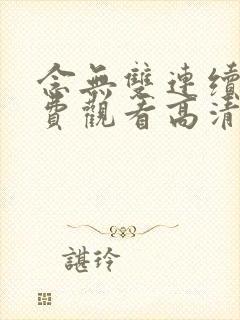 念無雙連續
費觀看高清
諶玲